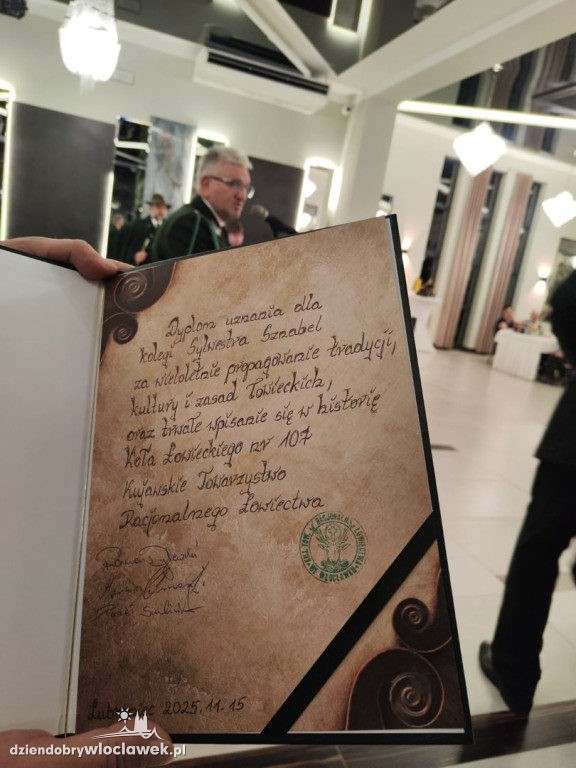 Dyplom uznania dla
kolegi Sylwestra Sznabel
za wieloletnie propagowanie tradycji,
kultury i zasad Łowieckich,
oraz trwałe wpisanie się w historię
Koła Łowieckiego nr 107
Kujawskie Towarzystwo
Racjonalnego Łowiectwa
2025.11.15
dziendobrywloclawek.pl